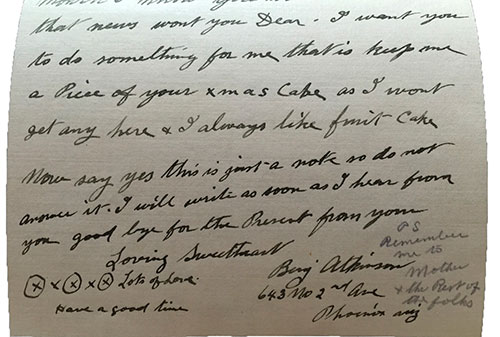 that news wont you Dear. I want you
to do something for me that is keep me
a Piece of your xmas Cake as I wont
get any here & I always like fruit Cake
Now say yes this is just a note so do not
answer it. I will write as soon as I hear from
you good bye for the Present from your
Loving Sweetheart
x x x x x Lots of Love.
Benj Atkinson
Have a good time
643 No 2nd Ave
Phoenix Ariz
PS
Remember
me to
Mother
& the Rest of
the folks